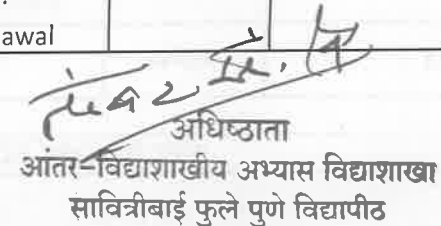 awal
अधिष्ठाता
आंतर-विद्याशाखीय अभ्यास विद्याशाखा
सावित्रीबाई फुले पुणे विद्यापीठ